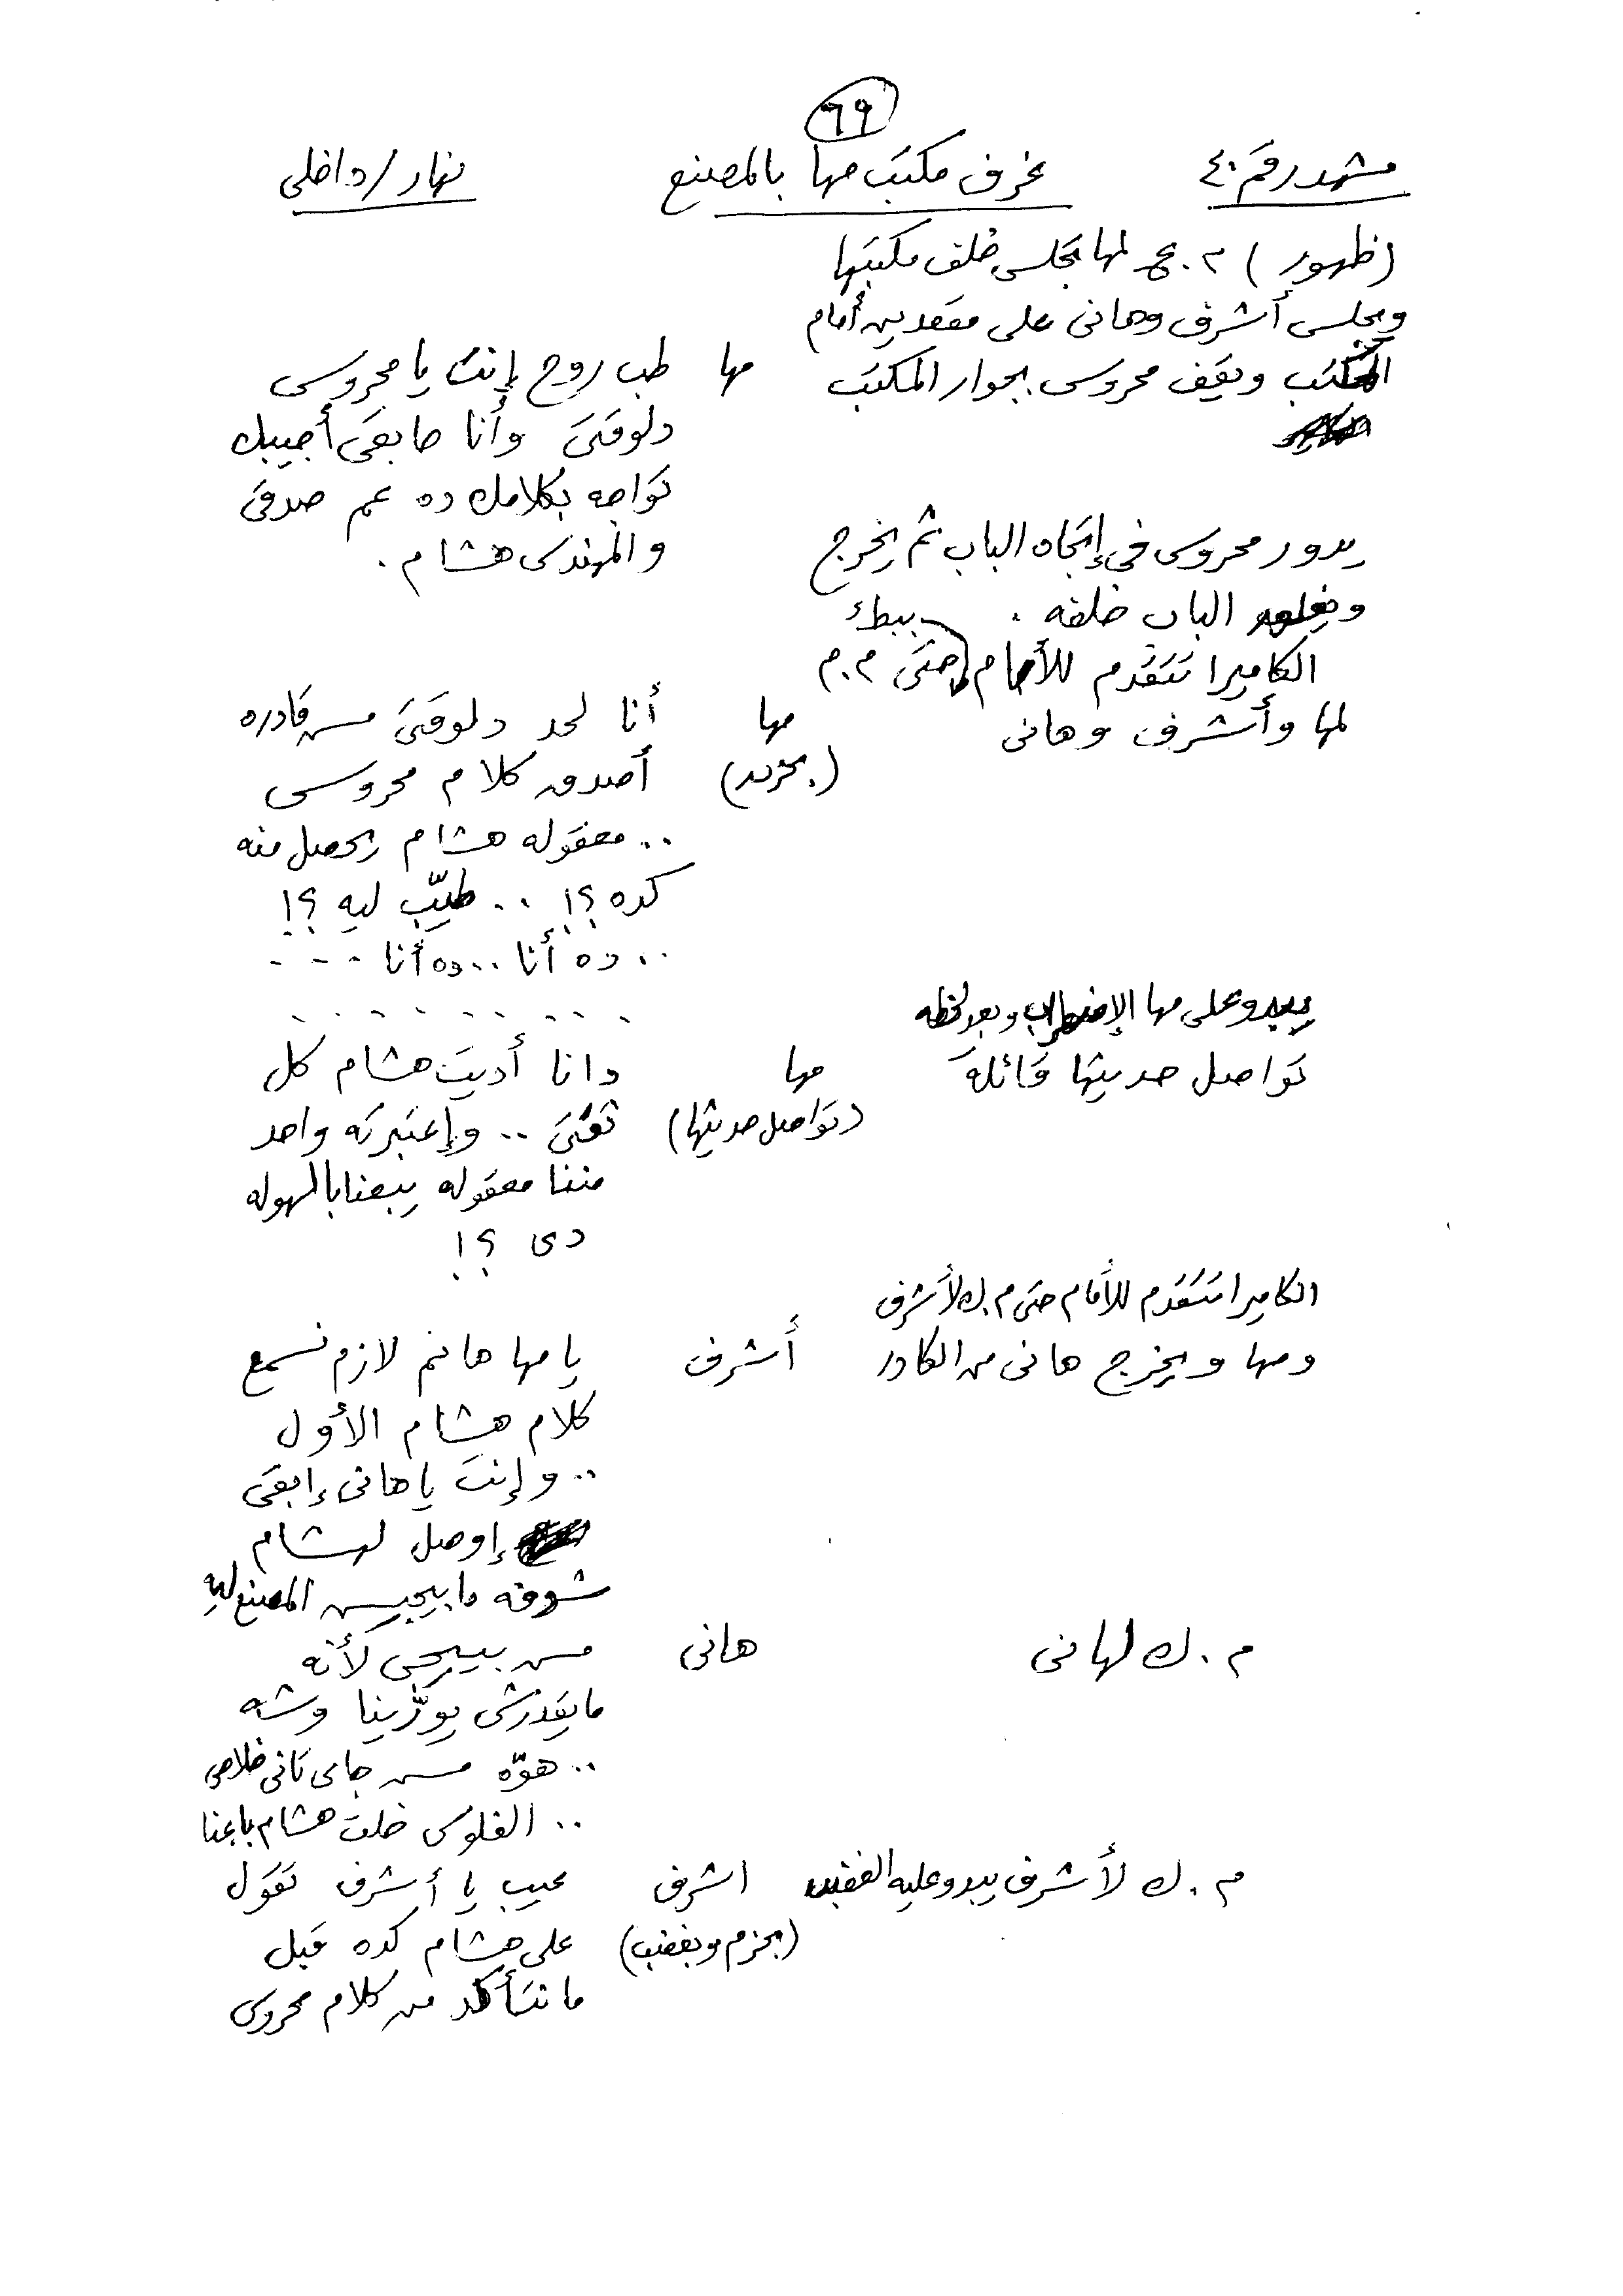 ٦٩
مشهد رقم ٤٠ غرف مكتب مها بالمصنع نهار/داخلى
(ظهور) م.ع لمها تجلس خلف مكتبها
ويجلس أشرف وهانى على مقعدين أمام
المكتب ويقف محروس بجوار المكتب
مها طب روح إنت يا محروس
دلوقتى وأنا حابقى أجيبك
تواجه بكلامك ده عم صدقى
والمهندس هشام .
يدور محروس في إتجاه الباب ثم يخرج
ويغلق الباب خلفه .
الكاميرا تتقدم للأمام ببطء حتى م.م
لمها وأشرف وهانى
مها أنا لحد دلوقتى مش قادره
(بحزن) أصدق كلام محروس
.. معقوله هشام يحصل منه
كده ؟! .. طيّب ليه ؟!
.. ده أنا .. ده أنا - - -
. . . . . . . . . .
يبدو على مها الإضطراب وبعد لحظه
تواصل حديثها قائلة
مها دانا أديت هشام كل
(تواصل حديثها) ثقتى .. وإعتبرته واحد
مننا معقوله يبعنا بالسهوله
دى ؟!
الكاميرا تتقدم للأمام حتى م.ك لأشرف
ومها ويخرج هانى من الكادر
أشرف يا مها هانم لازم نسمع
كلام هشام الأول
.. وإنت يا هانى إبقى
إوصل لهشام
شوفه ما بيجيش المصنع ليه
م.ك لهانى
هانى مش بييجى لأنه
ما يقدرش يورّينا وشه
.. هوّه مش جاى تانى خلاص
.. الفلوس خلت هشام باعنا
م.ك لأشرف يبدو عليه الغضب
اشرف عيب يا أشرف تقول
(بحزم وبغضب) على هشام كده قبل
ما نتأكد من كلام محروس